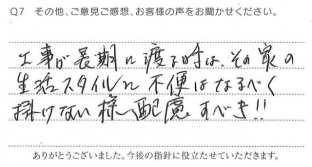 Q7 その他、ご意見ご感想、お客様の声をお聞かせください。
工事が長期に渡る時は、その家の
生活スタイルに不便はなるべく
掛けない様へ配慮すべき!!
ありがとうございました。今後の指針に役立たせていただきます。